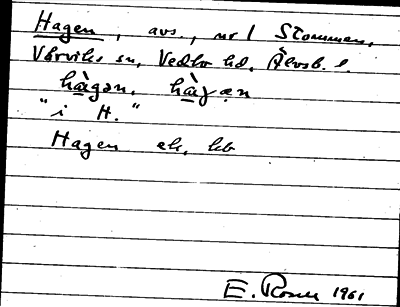 Hagen, avs., nr 1 Stommen,
Vårviks sn, Vedbo hd, Älvsb. l.
hàgən, hàgæn
"i H."
Hagen ek. kb
E. Rosell 1961